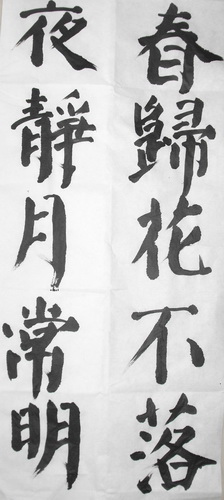 春歸花不落
夜靜月常明